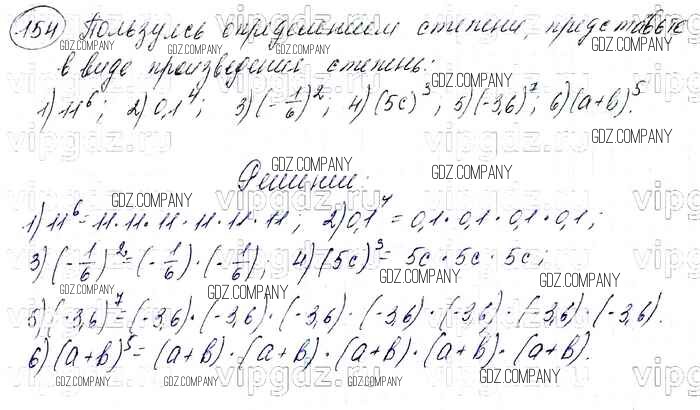 154 Пользуясь определением степени, представьте
в виде произведения степень:
1) 11⁶; 2) 0,1⁴; 3) (-1/6)²; 4) (5c)³; 5) (-3,6)⁷; 6) (a+b)⁵.
Решение:
1) 11⁶ = 11·11·11·11·11·11; 2) 0,1⁴ = 0,1·0,1·0,1·0,1;
3) (-1/6)² = (-1/6)·(-1/6); 4) (5c)³ = 5c·5c·5c;
5) (-3,6)⁷ = (-3,6)·(-3,6)·(-3,6)·(-3,6)·(-3,6)·(-3,6)·(-3,6).
6) (a+b)⁵ = (a+b)·(a+b)·(a+b)·(a+b)·(a+b).
GDZ.COMPANY
vipgdz.ru